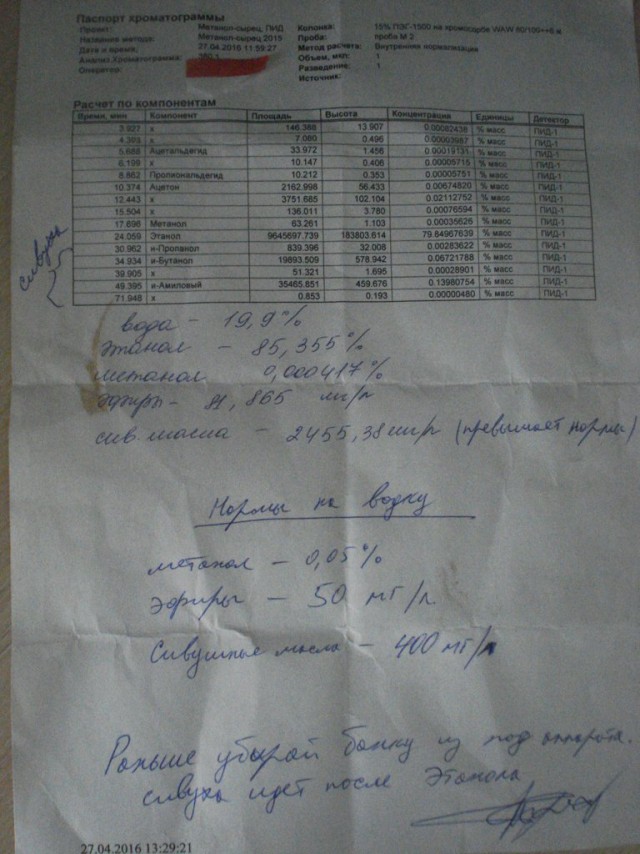 Паспорт хроматограммы
Проект: Метанол-сырец, ПИД
Название метода: Метанол-сырец 2015
Дата и время: 27.04.2016 11:59:27
Анализ.Хроматограмма:
Оператор:
Колонка: 15% ПЭГ-1500 на хромосорбе WAW 80/100
Проба: проба М 2
Метод расчета: Внутренняя нормализация
Объем, мкл: 1
Разведение: 1
Источник:
Расчет по компонентам
Время, мин Компонент Площадь Высота Концентрация Единицы Детектор
3.927 x 146.388 13.907 0.00082438 % масс ПИД-1
4.393 x 7.080 0.496 0.00003987 % масс ПИД-1
5.688 Ацетальдегид 33.972 1.456 0.00019131 % масс ПИД-1
6.199 x 10.147 0.406 0.00005715 % масс ПИД-1
8.862 Пропиональдегид 10.212 0.353 0.00005751 % масс ПИД-1
10.374 Ацетон 2162.998 56.433 0.00674820 % масс ПИД-1
12.443 x 3751.685 102.104 0.02112752 % масс ПИД-1
15.504 x 136.011 3.780 0.00076594 % масс ПИД-1
17.696 Метанол 63.261 1.103 0.00035626 % масс ПИД-1
24.059 Этанол 9645697.739 183803.614 79.84967639 % масс ПИД-1
30.962 н-Пропанол 839.396 32.008 0.00283622 % масс ПИД-1
34.934 и-Бутанол 19893.509 578.942 0.06721788 % масс ПИД-1
39.905 x 51.321 1.695 0.00028901 % масс ПИД-1
49.395 и-Амиловый 35465.851 459.676 0.13980754 % масс ПИД-1
71.948 x 0.853 0.193 0.00000480 % масс ПИД-1
сивуха
вода - 19,9%
этанол - 85,355%
метанол 0,000417%
эфиры - 81,865 мг/л
сив. масла - 2455,38мг/л (превышает нормы)
Нормы на водку
метанол - 0,05%
Эфиры - 50 мг/л
Сивушные масла - 400 мг/л
Раньше убирай банку из под аппарата.
сивуха идет после Этанола
27.04.2016 13:29:21